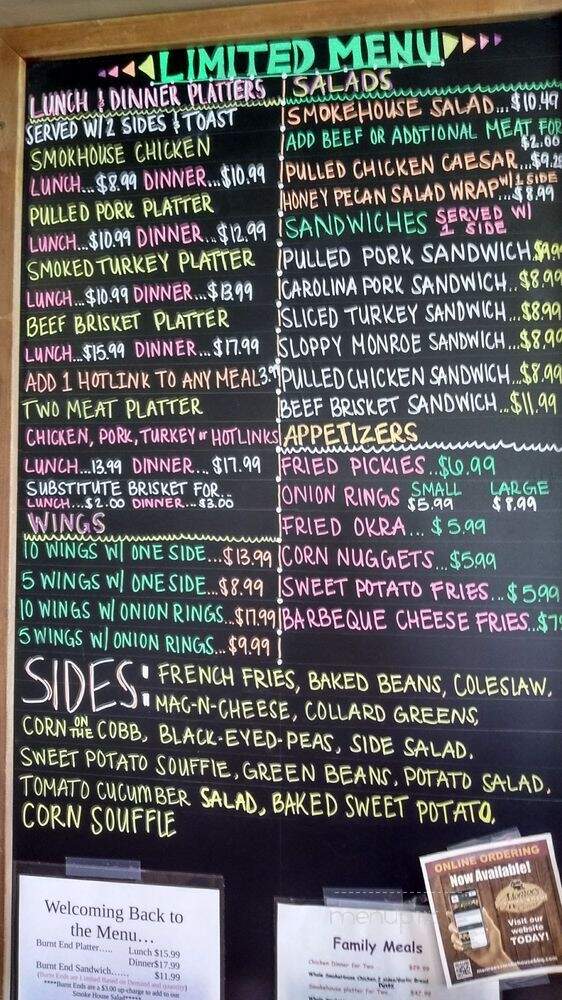 LIMITED MENU
LUNCH & DINNER PLATTERS
SERVED W/ 2 SIDES & TOAST
SMOKHOUSE CHICKEN
LUNCH...$8.99 DINNER...$10.99
PULLED PORK PLATTER
LUNCH...$10.99 DINNER...$12.99
SMOKED TURKEY PLATTER
LUNCH...$10.99 DINNER...$13.99
BEEF BRISKET PLATTER
LUNCH...$15.99 DINNER...$17.99
ADD 1 HOTLINK TO ANY MEAL 3.99
TWO MEAT PLATTER
CHICKEN, PORK, TURKEY or HOTLINKS
LUNCH...13.99 DINNER...$17.99
SUBSTITUTE BRISKET FOR...
LUNCH...$2.00 DINNER...$3.00
WINGS
10 WINGS W/ ONE SIDE...$13.99
5 WINGS W/ ONE SIDE...$8.99
10 WINGS W/ ONION RINGS...$17.99
5 WINGS W/ ONION RINGS...$9.99
SALADS
SMOKEHOUSE SALAD...$10.49
ADD BEEF OR ADDTIONAL MEAT FOR
$2.00
PULLED CHICKEN CAESAR...$9.2
HONEY PECAN SALAD WRAP W/ 1 SIDE
...$8.99
SANDWICHES SERVED W/
1 SIDE
PULLED PORK SANDWICH.$9.9
CAROLINA PORK SANDWICH..$8.99
SLICED TURKEY SANDWICH...$8.99
SLOPPY MONROE SANDWICH...$8.99
PULLED CHICKEN SANDWICH...$8.99
BEEF BRISKET SANDWICH...$11.99
APPETIZERS
FRIED PICKIES..$6.99
ONION RINGS SMALL LARGE
$5.99 $8.99
FRIED OKRA... $5.99
CORN NUGGETS...$5.99
SWEET POTATO FRIES...$5.99
BARBEQUE CHEESE FRIES..$7
SIDES: FRENCH FRIES, BAKED BEANS, COLESLAW,
MAC-N-CHEESE, COLLARD GREENS,
CORN ON THE COBB, BLACK-EYED-PEAS, SIDE SALAD,
SWEET POTATO SOUFFIE, GREEN BEANS, POTATO SALAD,
TOMATO CUCUMBER SALAD, BAKED SWEET POTATO,
CORN SOUFFLE
Welcoming Back to
the Menu…
Burnt End Platter..... Lunch $15.99
Dinner$17.99
Burnt End Sandwich...... $11.99
(Burnt Ends are Limited Based on Demand and quantity)
****Burnt Ends are a $3.00 up-charge to add to our
Smoke House Salad*****
Family Meals
Chicken Dinner for Two $29.99
Smokehouse platter for Two $47.99
ONLINE ORDERING
Now Available!
Visit our
website
TODAY!